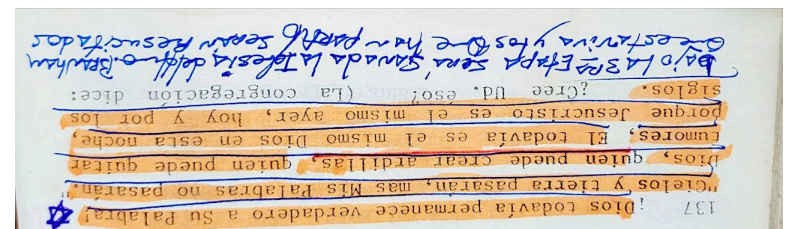 137 ¡Dios todavía permanece verdadero a Su Palabra!
"Cielos y tierra pasarán, mas Mis Palabras no pasarán."
Dios, quién puede crear ardillas, quién puede quitar
tumores, El todavía es el mismo Dios en esta noche,
porque Jesucristo es el mismo ayer, hoy y por los
siglos. ¿Cree Ud. éso? (La congregación dice:
BAJO LA 3RA ETAPA SERA SANADA LA IGLESIA del Hno. BRANHAM
Que esta viva y los Que han SERAN Resucitados